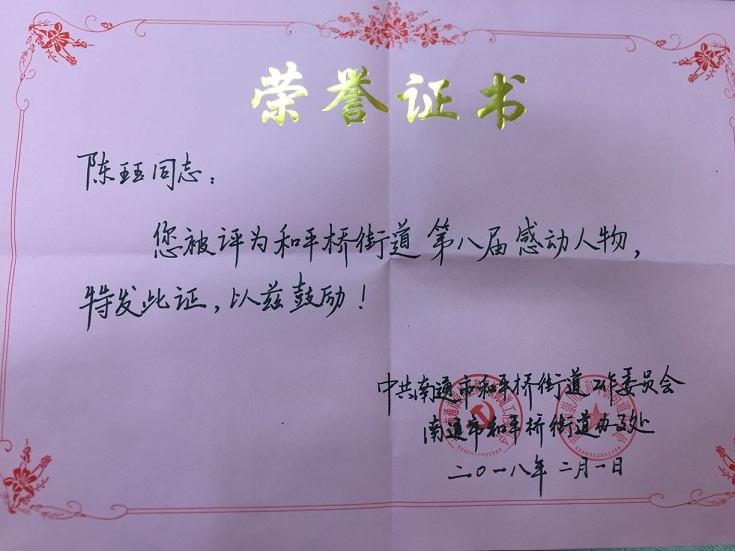 荣誉证书
陈珏同志：
您被评为和平桥街道第八届感动人物，
特发此证，以兹鼓励！
中共南通市和平桥街道工作委员会
南通市和平桥街道办事处
二〇一八年二月一日